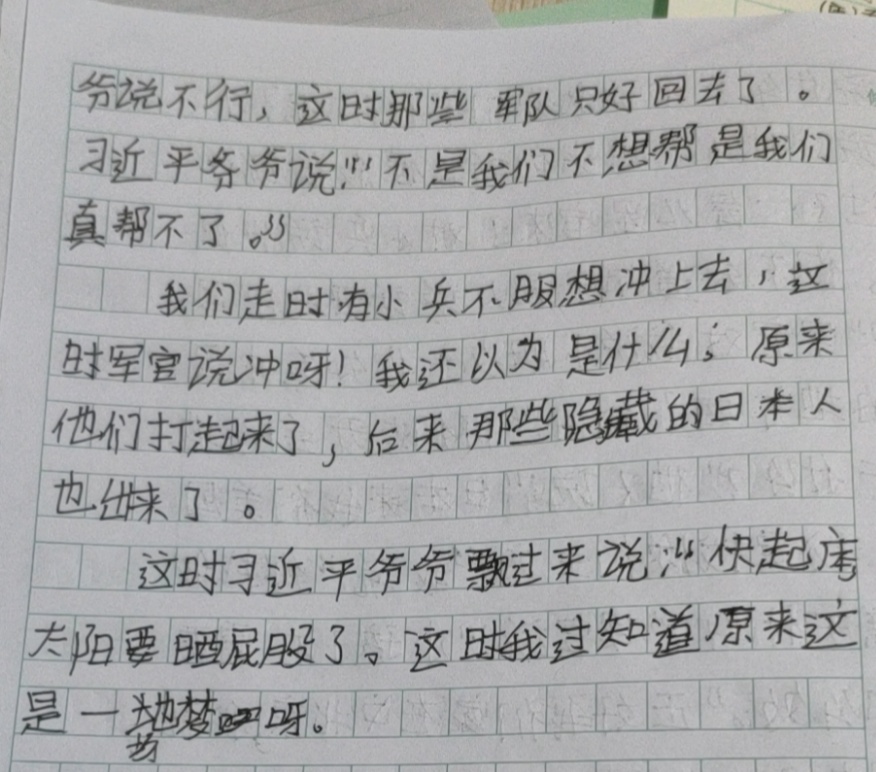 爷说不行，这时那些军队只好回去了。
习近平爷爷说：“不是我们不想帮是我们
真帮不了。”
我们走时有小兵不服想冲上去，这
时军官说冲呀！我还以为是什么，原来
他们打起来了，后来那些隐藏的日本人
也出来了。
这时习近平爷爷飘过来说：“快起床
太阳要晒屁股了。这时我过知道原来这
是一场梦呀。